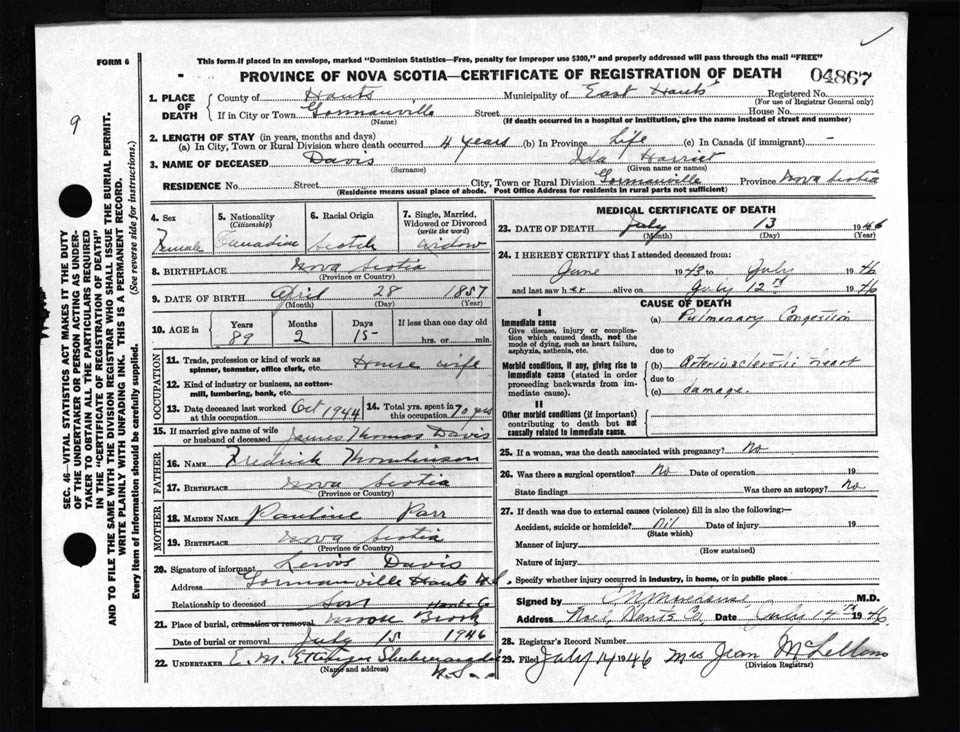 FORM 6
This form if placed in an envelope, marked "Dominion Statistics—Free, penalty for improper use $300," and properly addressed will pass through the mail "FREE"
PROVINCE OF NOVA SCOTIA—CERTIFICATE OF REGISTRATION OF DEATH 04867
9
1. PLACE OF DEATH { County of Hants Municipality of East Hants Registered No.
(For use of Registrar General only)
If in City or Town Gormanville Street House No.
(Name) (If death occurred in a hospital or institution, give the name instead of street and number)
2. LENGTH OF STAY (in years, months and days)
(a) In City, Town or Rural Division where death occurred 4 years (b) In Province Life (c) In Canada (if immigrant) —
3. NAME OF DECEASED Davis Ida Harriet
(Surname) (Given name or names)
RESIDENCE No. Street City, Town or Rural Division Gormanville Province Nova Scotia
(Residence means usual place of abode. Post Office Address for residents in rural parts not sufficient)
SEC. 46—VITAL STATISTICS ACT MAKES IT THE DUTY
OF THE UNDERTAKER OR PERSON ACTING AS UNDER-
TAKER TO OBTAIN ALL THE PARTICULARS REQUIRED
IN THE "CERTIFICATE OF REGISTRATION OF DEATH"
AND TO FILE THE SAME WITH THE DIVISION REGISTRAR WHO SHALL ISSUE THE BURIAL PERMIT.
WRITE PLAINLY WITH UNFADING INK. THIS IS A PERMANENT RECORD.
Every item of information should be carefully supplied. (See reverse side for instructions.)
4. Sex 5. Nationality 6. Racial Origin 7. Single, Married,
(Citizenship) Widowed or Divorced
(write the word)
Female Canadian Scotch Widow
8. BIRTHPLACE Nova Scotia
(Province or Country)
9. DATE OF BIRTH April 28 1857
(Month) (Day) (Year)
10. AGE in Years Months Days If less than one day old
89 2 15 hrs. or min.
OCCUPATION
11. Trade, profession or kind of work as
spinner, teamster, office clerk, etc. House wife
12. Kind of industry or business, as cotton-
mill, lumbering, bank, etc.
13. Date deceased last worked at this occupation Oct 1944 14. Total yrs. spent in this occupation 70 yrs
15. If married give name of wife
or husband of deceased James Thomas Davis
FATHER
16. NAME Fredrick
17. BIRTHPLACE Nova Scotia
(Province or Country)
MOTHER
18. MAIDEN NAME Pauline Parr
19. BIRTHPLACE Nova Scotia
(Province or Country)
20. Signature of informant Lewis Davis
Address Gormanville Hants N.S.
Relationship to deceased Son
Hants Co
21. Place of burial, cremation or removal Moose Brook
Date of burial or removal July 15 1946
22. UNDERTAKER E. M.
(Name and address)
N.S.
MEDICAL CERTIFICATE OF DEATH
23. DATE OF DEATH July 13 1946
(Month) (Day) (Year)
24. I HEREBY CERTIFY that I attended deceased from:
June 1943 to July 1946
and last saw her alive on July 12th 1946
CAUSE OF DEATH
I
Immediate cause (a) Pulmonary Congestion
Give disease, injury or complica-
tion which caused death, not the
mode of dying, such as heart failure,
asphyxia, asthenia, etc. due to
Morbid conditions, if any, giving rise to (b) Arteriosclerotic heart
immediate cause (stated in order due to
proceeding backwards from im- (c) damage.
mediate cause).
II
Other morbid conditions (if important)
contributing to death but not
causally related to immediate cause.
25. If a woman, was the death associated with pregnancy? No
26. Was there a surgical operation? No Date of operation 19
State findings Was there an autopsy? No
27. If death was due to external causes (violence) fill in also the following:—
Accident, suicide or homicide? Nil Date of injury 19
(State which)
Manner of injury
(How sustained)
Nature of injury
Specify whether injury occurred in industry, in home, or in public place
Signed by M.D.
Address Noel, Hants Co, Date July 14th 1946
28. Registrar's Record Number
29. Filed July 14 1946 Mrs Jean McLellan
(Division Registrar)